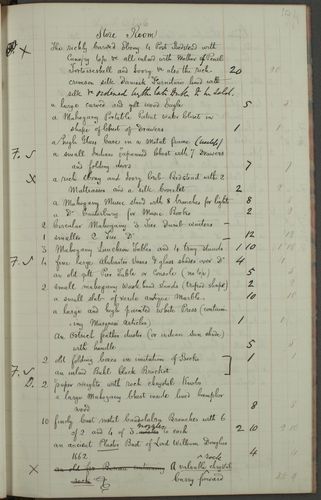 Store Room
X The richly Carved Ebony 4 Post Bedstead with
Canopy top &c all inlaid with Mother of Pearl
Tortoiseshell and Ivory &c also the rich
crimson silk Damask Furniture lined with
silk & ordered by the late Duke to be sold. 20
a large carved and gilt wood Eagle 5
a Mahogany Portable Patent water Closet in
shape of Chest of Drawers 1 1
a high Glass Case in a metal frame (
F. S a small Indian Japanned Chest with 7 Drawers
and folding doors 7
X a rich Ebony and Ivory Crib Bedstead with 2
Mattresses and a silk Coverlet 2
a Mahogany Music stand with 8 branches for lights 8
a Do Canterbury for Music Books 2
2 Circular Mahogany 3 tier Dumb waiters
1 smaller 2 tier Do 12
3 Mahogany Luncheon Tables and 4 tray stands 1 10
F. S 4 fine large Alabaster Vases & glass shades over Do 4 1
an old gilt Pier Table or Console (no top) 5
2 small mahogany Wash hand stands (tripod shape) 2
a small slab of verde antique Marble 10
a large and high painted white Press (contain
ing Museum Articles) 1
An Ostrich feather duster (or indian sun shade)
with handle 5
2 old folding boxes in imitation of Books 1
F. S an inlaid Buhl Clock Bracket
D. 2 paper weights with rock chrystal Knobs
a large Mahogany Chest inside lined camphor
wood 8
10 finely Cast metal Candelabra Branches with 6
of 2 and 4 of 3 nozzles to each 2 10
an ancient Plaster Bust of Lord William Douglas
1662 4
X A valuable rock chrystal
Carry forward